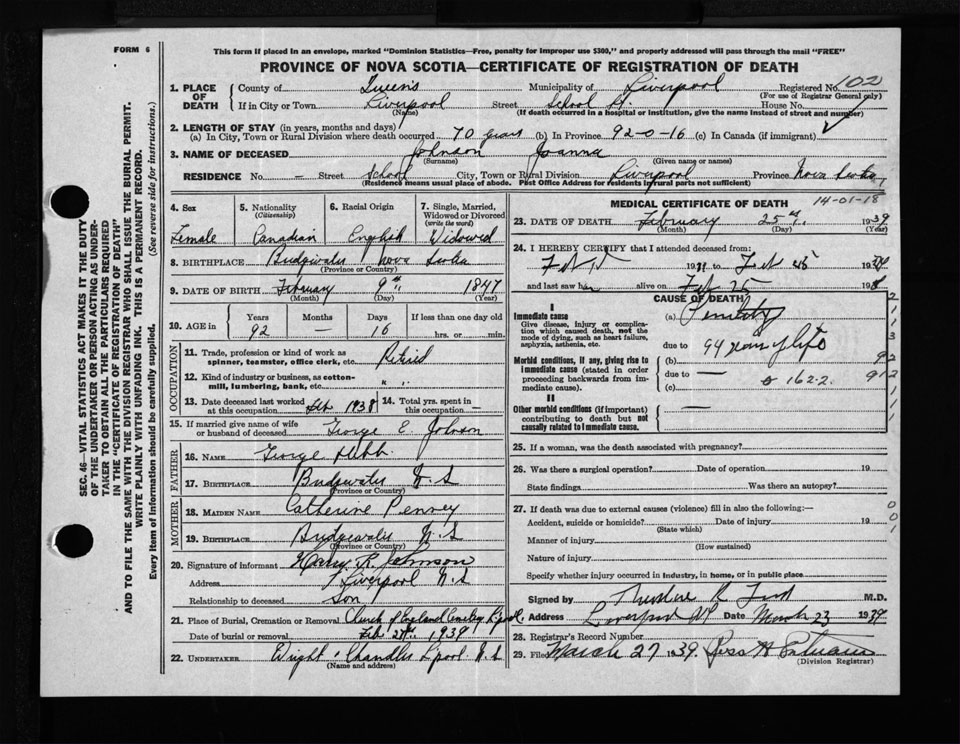 FORM 6
This form if placed in an envelope, marked "Dominion Statistics—Free, penalty for improper use $300," and properly addressed will pass through the mail "FREE"
PROVINCE OF NOVA SCOTIA—CERTIFICATE OF REGISTRATION OF DEATH
SEC. 46—VITAL STATISTICS ACT MAKES IT THE DUTY
OF THE UNDERTAKER OR PERSON ACTING AS UNDER-
TAKER TO OBTAIN ALL THE PARTICULARS REQUIRED
IN THE "CERTIFICATE OF REGISTRATION OF DEATH"
AND TO FILE THE SAME WITH THE DIVISION REGISTRAR WHO SHALL ISSUE THE BURIAL PERMIT.
WRITE PLAINLY WITH UNFADING INK. THIS IS A PERMANENT RECORD.
Every item of information should be carefully supplied. (See reverse side for instructions.)
1. PLACE OF DEATH County of Queens Municipality of Liverpool Registered No. 102
(For use of Registrar General only)
If in City or Town Liverpool Street School St. House No.
(Name) (If death occurred in a hospital or institution, give the name instead of street and number)
2. LENGTH OF STAY (in years, months and days)
(a) In City, Town or Rural Division where death occurred 70 years (b) In Province 92-0-16 (c) In Canada (if immigrant)
3. NAME OF DECEASED Johnson Joanna
(Surname) (Given name or names)
RESIDENCE No. — Street School City, Town or Rural Division Liverpool Province Nova Scotia
(Residence means usual place of abode. Post Office Address for residents in rural parts not sufficient)
4. Sex 5. Nationality (Citizenship) 6. Racial Origin 7. Single, Married, Widowed or Divorced (write the word)
Female Canadian English Widowed
8. BIRTHPLACE Bridgewater Nova Scotia
(Province or Country)
9. DATE OF BIRTH February 9th 1847
(Month) (Day) (Year)
10. AGE in Years Months Days If less than one day old
92 — 16 hrs. or min.
OCCUPATION
11. Trade, profession or kind of work as spinner, teamster, office clerk, etc. Retired
12. Kind of industry or business, as cotton-mill, lumbering, bank, etc. " "
13. Date deceased last worked at this occupation Feb 1938 14. Total yrs. spent in this occupation —
15. If married give name of wife or husband of deceased George E. Johnson
FATHER
16. NAME George
17. BIRTHPLACE Bridgewater N S
(Province or Country)
MOTHER
18. MAIDEN NAME Catherine Penney
19. BIRTHPLACE Bridgewater N S
(Province or Country)
20. Signature of informant Harry R. Johnson
Address Liverpool N.S
Relationship to deceased Son
21. Place of Burial, Cremation or Removal Church of England Cemetery L'pool
Date of burial or removal Feb 27th 1939
22. UNDERTAKER Wright & Chandler L'pool N.S
(Name and address)
MEDICAL CERTIFICATE OF DEATH
14-01-18
23. DATE OF DEATH February 25th 1939
(Month) (Day) (Year)
24. I HEREBY CERTIFY that I attended deceased from:
Feb 19 to Feb 25 19
and last saw her alive on Feb 25 19
CAUSE OF DEATH
I
Immediate cause (a) Senility
Give disease, injury or complication which caused death, not the mode of dying, such as heart failure, asphyxia, asthenia, etc.
due to 94 years of life
Morbid conditions, if any, giving rise to immediate cause (stated in order proceeding backwards from immediate cause).
(b)
due to —
(c) 162.2
II
Other morbid conditions (if important) contributing to death but not causally related to immediate cause. —
25. If a woman, was the death associated with pregnancy?
26. Was there a surgical operation? Date of operation 19
State findings Was there an autopsy?
27. If death was due to external causes (violence) fill in also the following:—
Accident, suicide or homicide? Date of injury 19
(State which)
Manner of injury
(How sustained)
Nature of injury
Specify whether injury occurred in industry, in home, or in public place
Signed by Theodore R Ford M.D.
Address Liverpool NS Date March 23 1939
28. Registrar's Record Number
29. Filed March 27 1939
(Division Registrar)